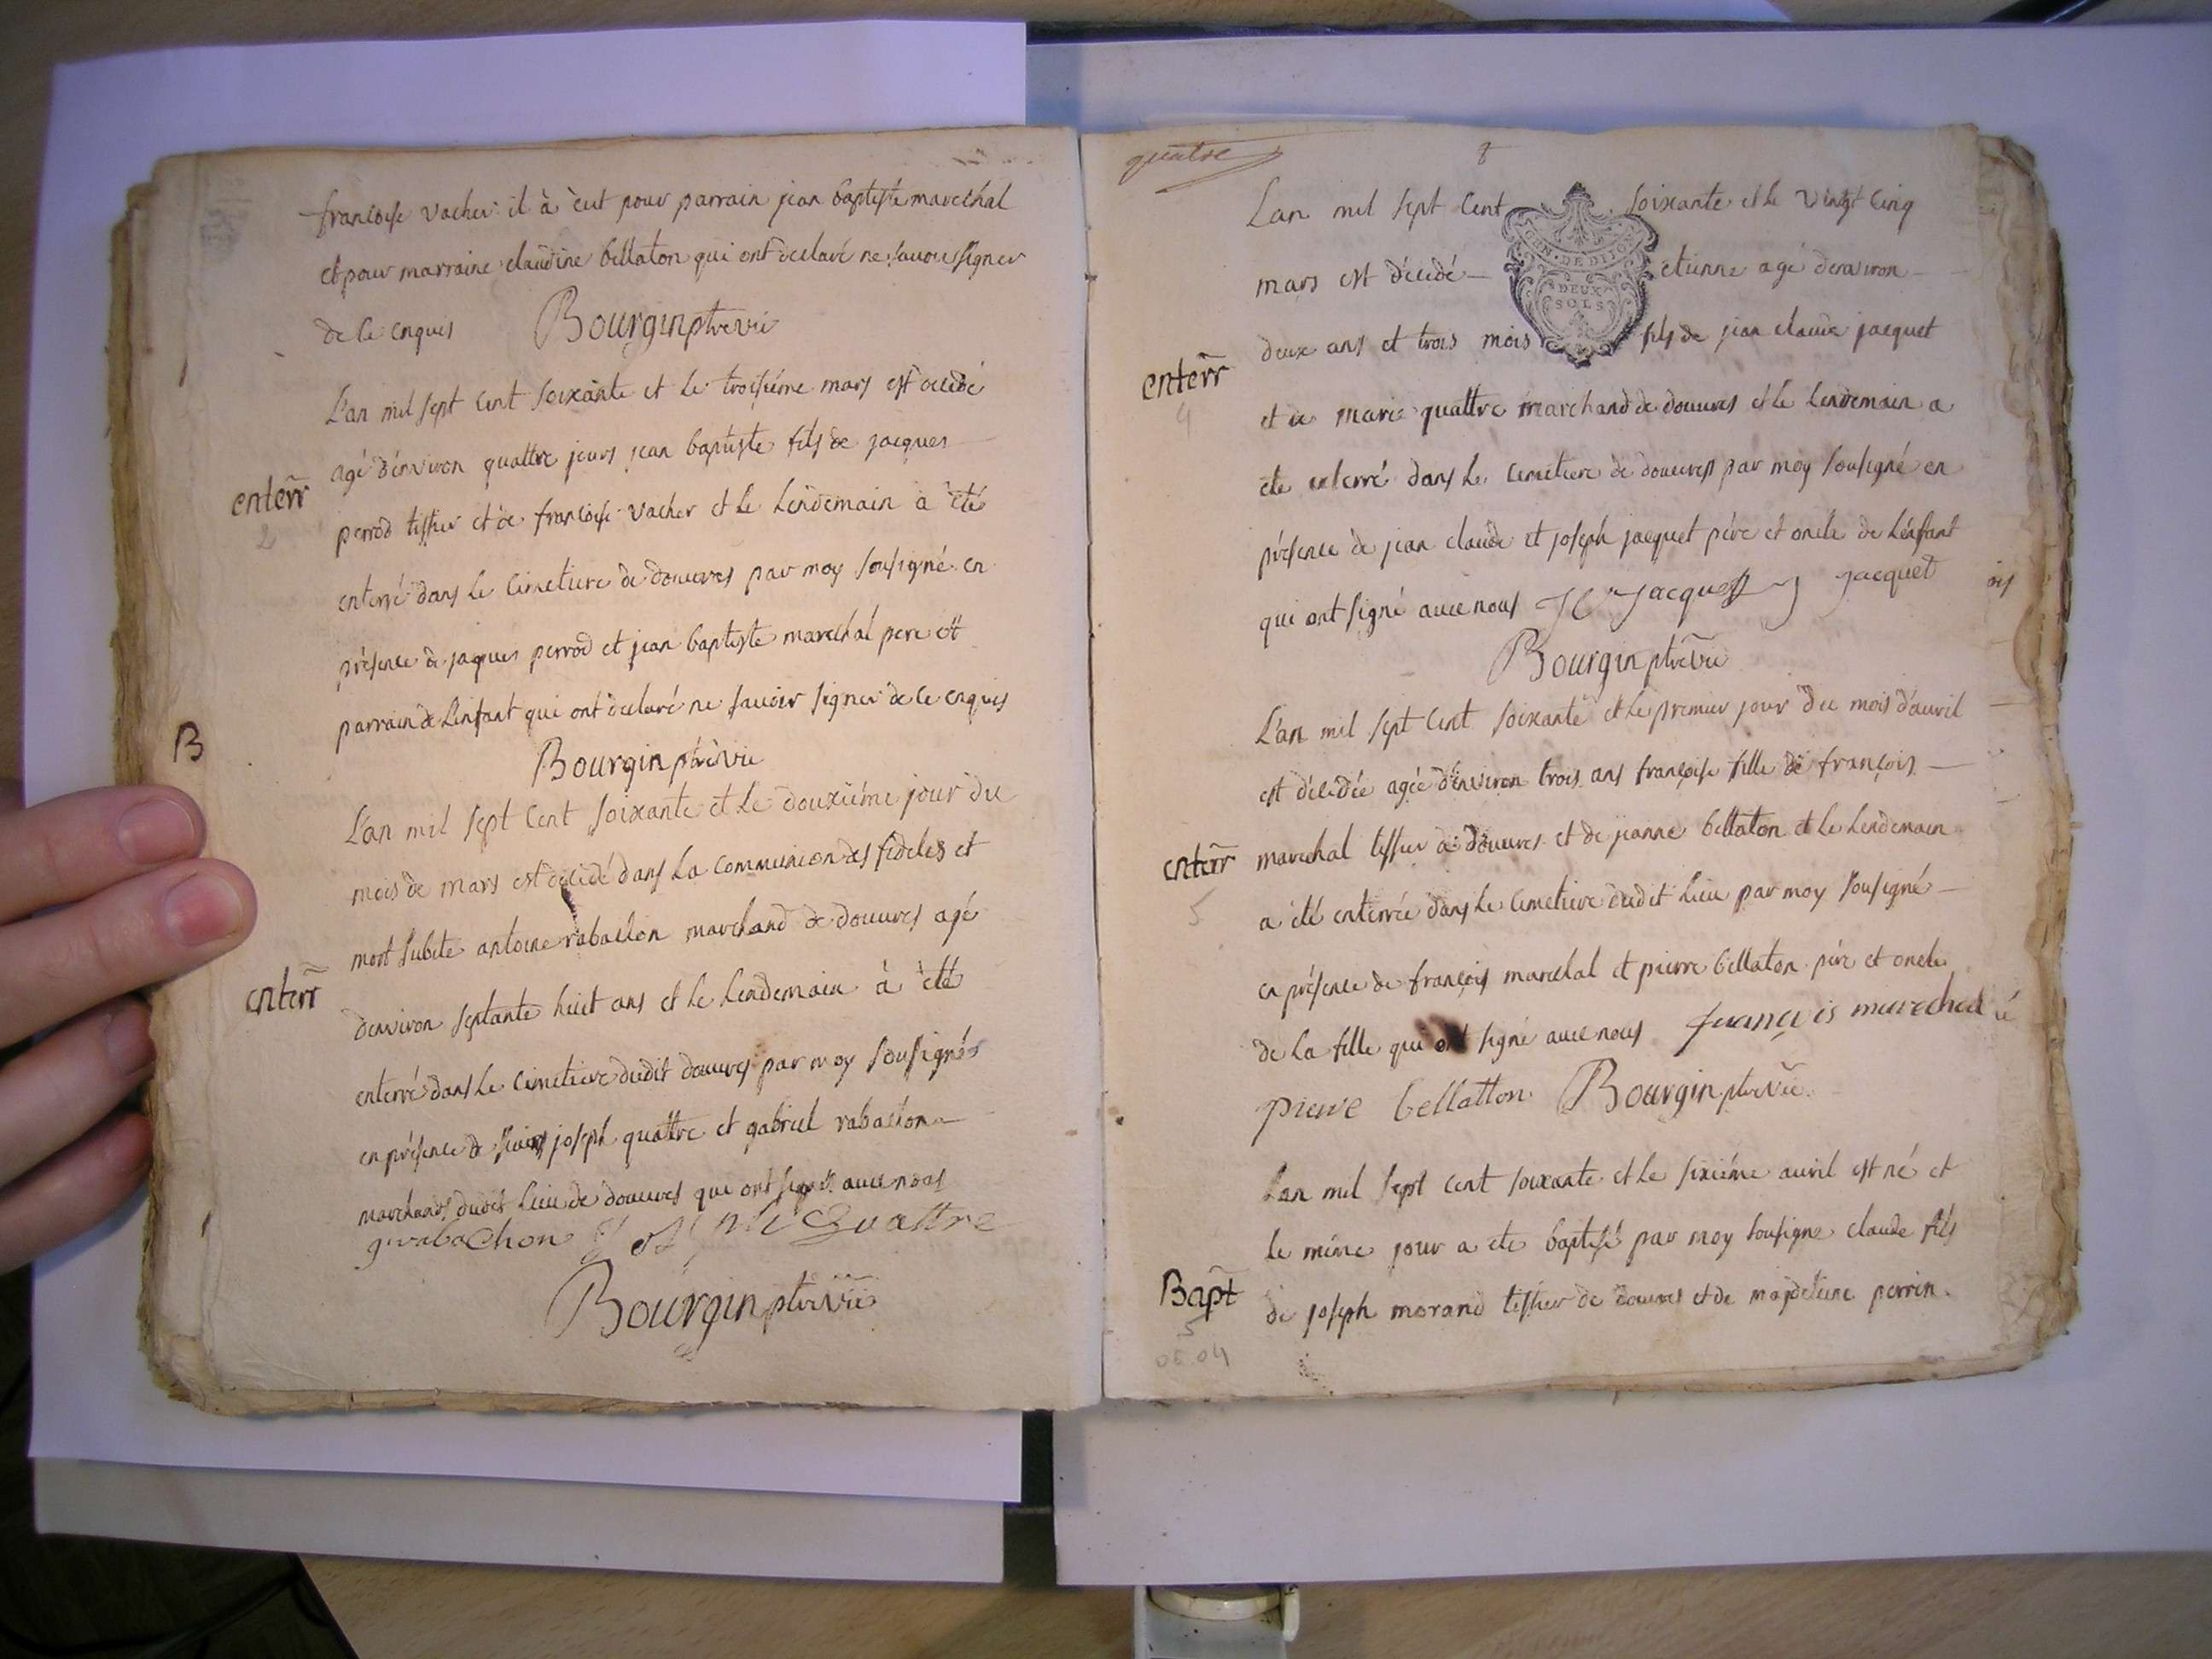 francoise vacher il à èut pour parrain jean baptiste marechal
et pour marraine claudine bellaton qui ont declaré ne savoir signer
de ce enquis Bourgin ptre vic
L'an mil sept cent soixante et le troisiéme mars est decedé
agé d'environ quattre jours jean baptiste fils de jacques
enterr
2
perrod tissier et de francoise vacher et le lendemain à été
enterré dans le cimetiere de douvres par moy sousigné en
présence de jaques perrod et jean baptiste marechal pere et
parrain de l'enfant qui ont declaré ne savoir signer de ce enquis
B
Bourgin ptre vic
L'an mil sept cent soixante et le douxiéme jour du
mois de mars est décidé dans la communion des fideles et
mort subite antoine rabachon marchand de douvres agé
enterr
denviron septante huit ans et le lendemain à été
enterré dans le cimetiere dudit douvres par moy sousignés
en présence de joseph quattre et gabriel rabachon
marchands dudit lieu de douvres qui ont signé avec nous
g rabachon Quattre
Bourgin ptre vic
quatre
L'an mil sept cent soixante et le vingt cinq
GEN. DE DIJON
DEUX
SOLS
mars est décidé etienne agé denviron
deux ans et trois mois fils de jean claude jacquet
enterr
4
et de marie quattre marchand de douvres et le lendemain a
ete enterré dans le cimetiere de douvres par moy sousigné en
présence de jean claude et joseph jacquet pére et oncle de l'énfant
qui ont signé avec nous JC Jacquet J Jacquet
Bourgin ptre vic
L'an mil sept cent soixante et le premier jour du mois d'avril
est décidée agée d'environ trois ans françoise fille de françois
enterr
5
marechal tissier de douvres et de jeanne bellaton et le lendemain
a été enterrée dans le cimetiere dudit lieu par moy sousigné
en présence de françois marechal et pierre bellaton pére et oncle
de la fille qui ont signé avec nous francois marechal
pierre bellatton Bourgin ptre vic
L'an mil sept cent soixante et le sixiéme avril est né et
le méme jour a ete baptisé par moy sousigne claude fils
Bapt
5
06.04
de joseph morand tissier de douvres et de majdeleine perrin